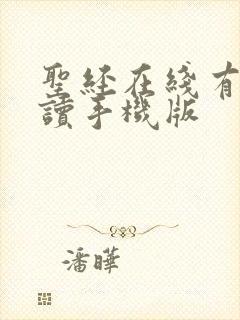 聖經在綫有
讀手機版
潘曄